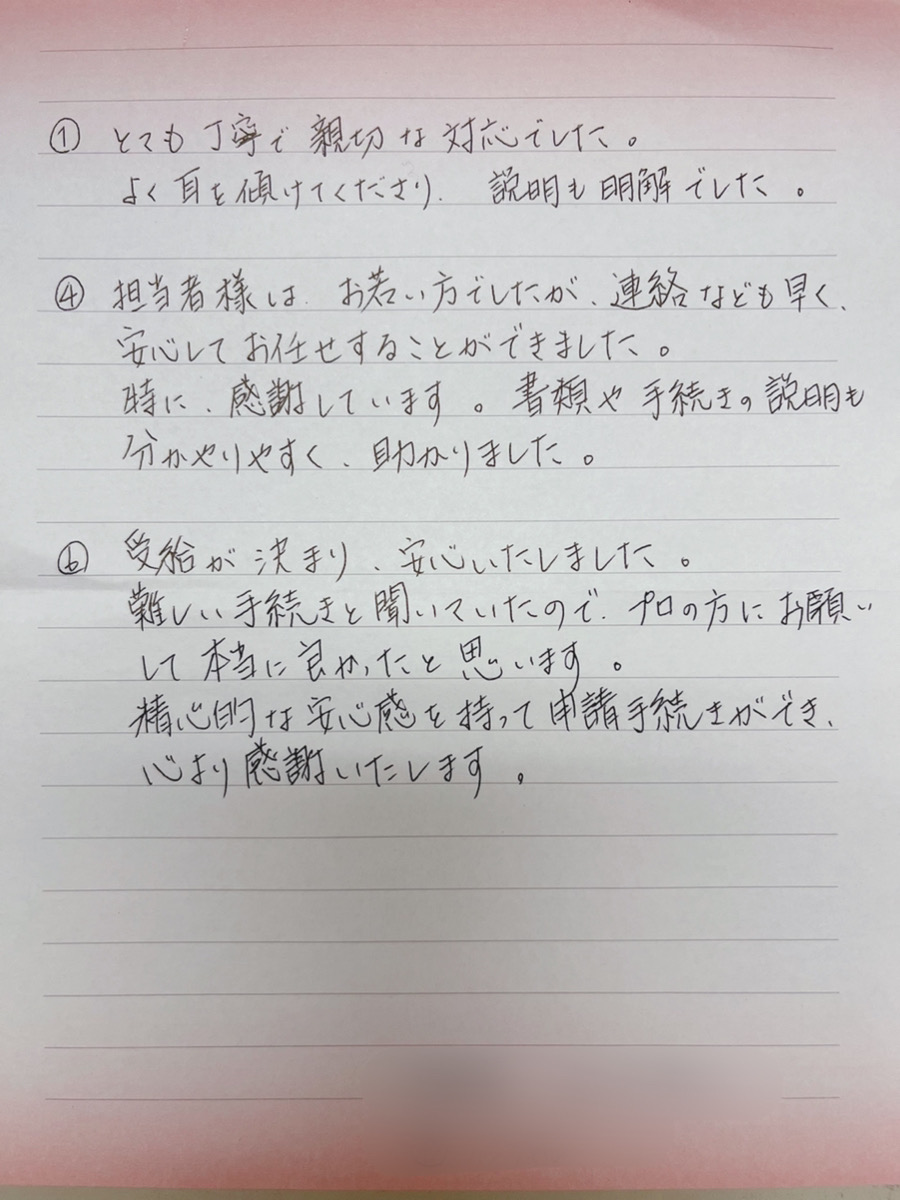 ① とても丁寧で親切な対応でした。
よく耳を傾けてくださり、説明も明解でした。
④ 担当者様は、お若い方でしたが、連絡なども早く、
安心してお任せすることができました。
特に、感謝しています。書類や手続きの説明も
分かりやすく、助かりました。
⑥ 受給が決まり、安心いたしました。
難しい手続きと聞いていたので、プロの方にお願い
して本当に良かったと思います。
精心的な安心感を持って申請手続きができ、
心より感謝いたします。